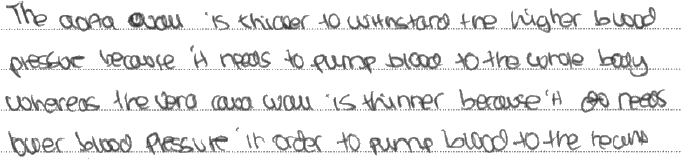 The aorta wall is thicker to withstand the higher blood
pressure because it needs to pump blood to the whole body
whereas the vena cava wall is thinner because it needs
lower blood pressure in order to pump blood to the